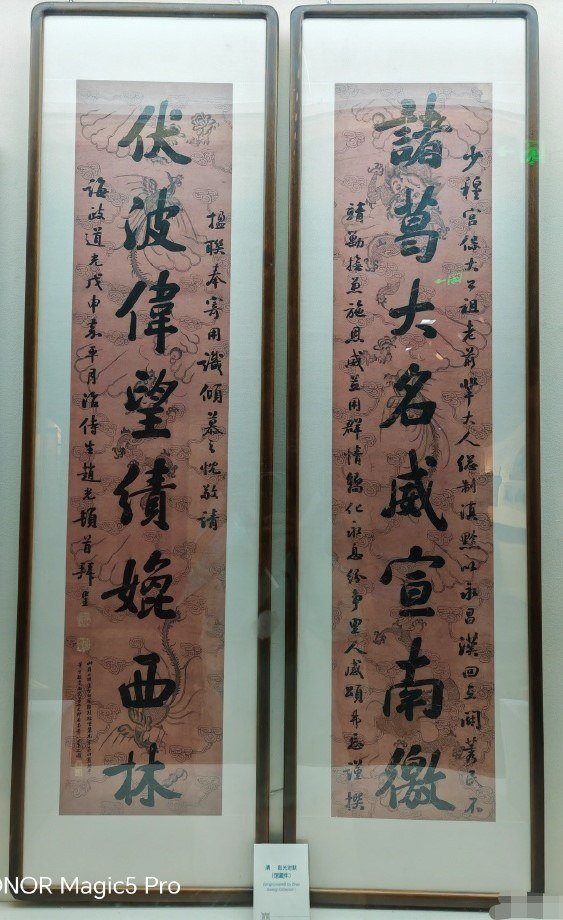 少穆宮保大公祖老前輩大人總制滇黔以永昌漢回互鬭莠民不
諸葛大名威宣南徼
靖勦撫兼施恩威並用群情嚮化永息紛爭里人感頌弗忘謹撰
楹聯奉寄用識傾慕之忱敬請
伏波偉望績媲西林
誨政道光戊申嘉平月治侍生趙光頓首拜呈
ONOR Magic5 Pro